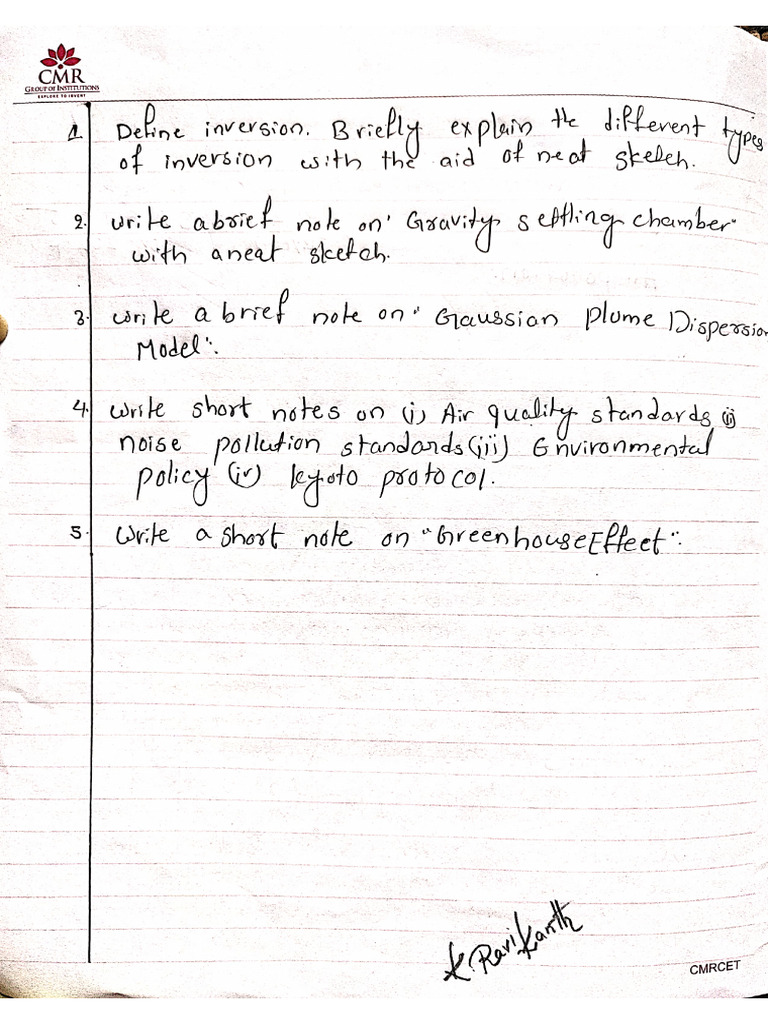 CMR
GROUP OF INSTITUTIONS
EXPLORE TO INVENT
1. Define inversion. Briefly explain the different types
of inversion with the aid of neat sketch.
2. write a brief note on "Gravity settling chamber"
with a neat sketch.
3. write a brief note on "Gaussian Plume Dispersion
Model".
4. write short notes on (i) Air quality standards (ii)
noise pollution standards (iii) Environmental
policy (iv) kyoto protocol.
5. write a short note on "Greenhouse Effect".
K. Ravi Kanth
CMRCET